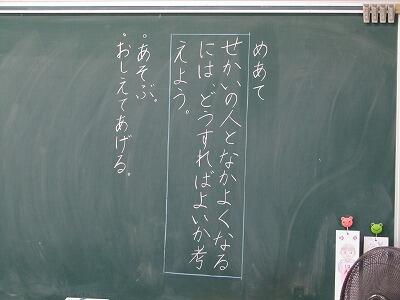 めあて
せかいの人となかよくなる
には、どうすればよいか考
えよう。
・あそぶ。
・おしえてあげる。